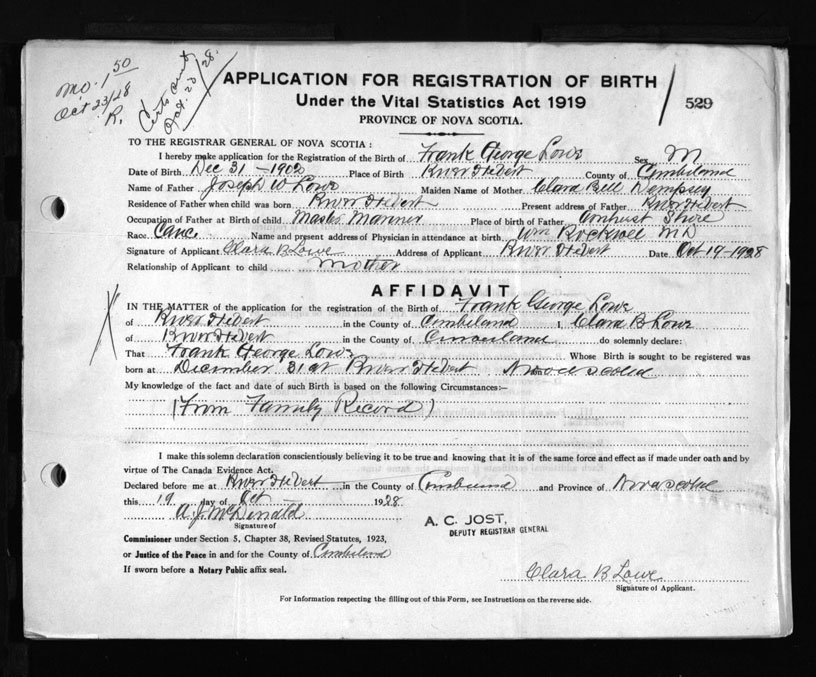 mo. 1 50
Oct 23/28
R.
Certs out
Oct. 23/28.
APPLICATION FOR REGISTRATION OF BIRTH
Under the Vital Statistics Act 1919
PROVINCE OF NOVA SCOTIA.
529
TO THE REGISTRAR GENERAL OF NOVA SCOTIA :
I hereby make application for the Registration of the Birth of Frank George Lowe Sex M
Date of Birth Dec 31 - 1902 Place of Birth River Hebert County of Cumberland
Name of Father Joseph W Lowe Maiden Name of Mother Clara Bell Dempsey
Residence of Father when child was born River Hebert Present address of Father River Hebert
Occupation of Father at Birth of child Master Mariner Place of birth of Father Amherst Shore
Race Cauc. Name and present address of Physician in attendance at birth Wm Rockwell MD
Signature of Applicant Clara B Lowe Address of Applicant River Hebert Date Oct 19-1928
Relationship of Applicant to child Mother
AFFIDAVIT
IN THE MATTER of the application for the registration of the Birth of Frank George Lowe
of River Hebert in the County of Cumberland I, Clara B Lowe
of River Hebert in the County of Cumberland do solemnly declare:
That Frank George Lowe Whose Birth is sought to be registered was
born at December 31 at River Hebert Nova Scotia
My knowledge of the fact and date of such Birth is based on the following Circumstances:-
(From Family Record)
I make this solemn declaration conscientiously believing it to be true and knowing that it is of the same force and effect as if made under oath and by
virtue of The Canada Evidence Act.
Declared before me at River Hebert in the County of Cumberland and Province of Nova Scotia
this 19 day of Oct 1928
A. J. McDonald
Signature of
A. C. JOST,
DEPUTY REGISTRAR GENERAL
Commissioner under Section 5, Chapter 38, Revised Statutes, 1923,
or Justice of the Peace in and for the County of Cumberland
If sworn before a Notary Public affix seal.
Clara B Lowe
Signature of Applicant.
For Information respecting the filling out of this Form, see Instructions on the reverse side.